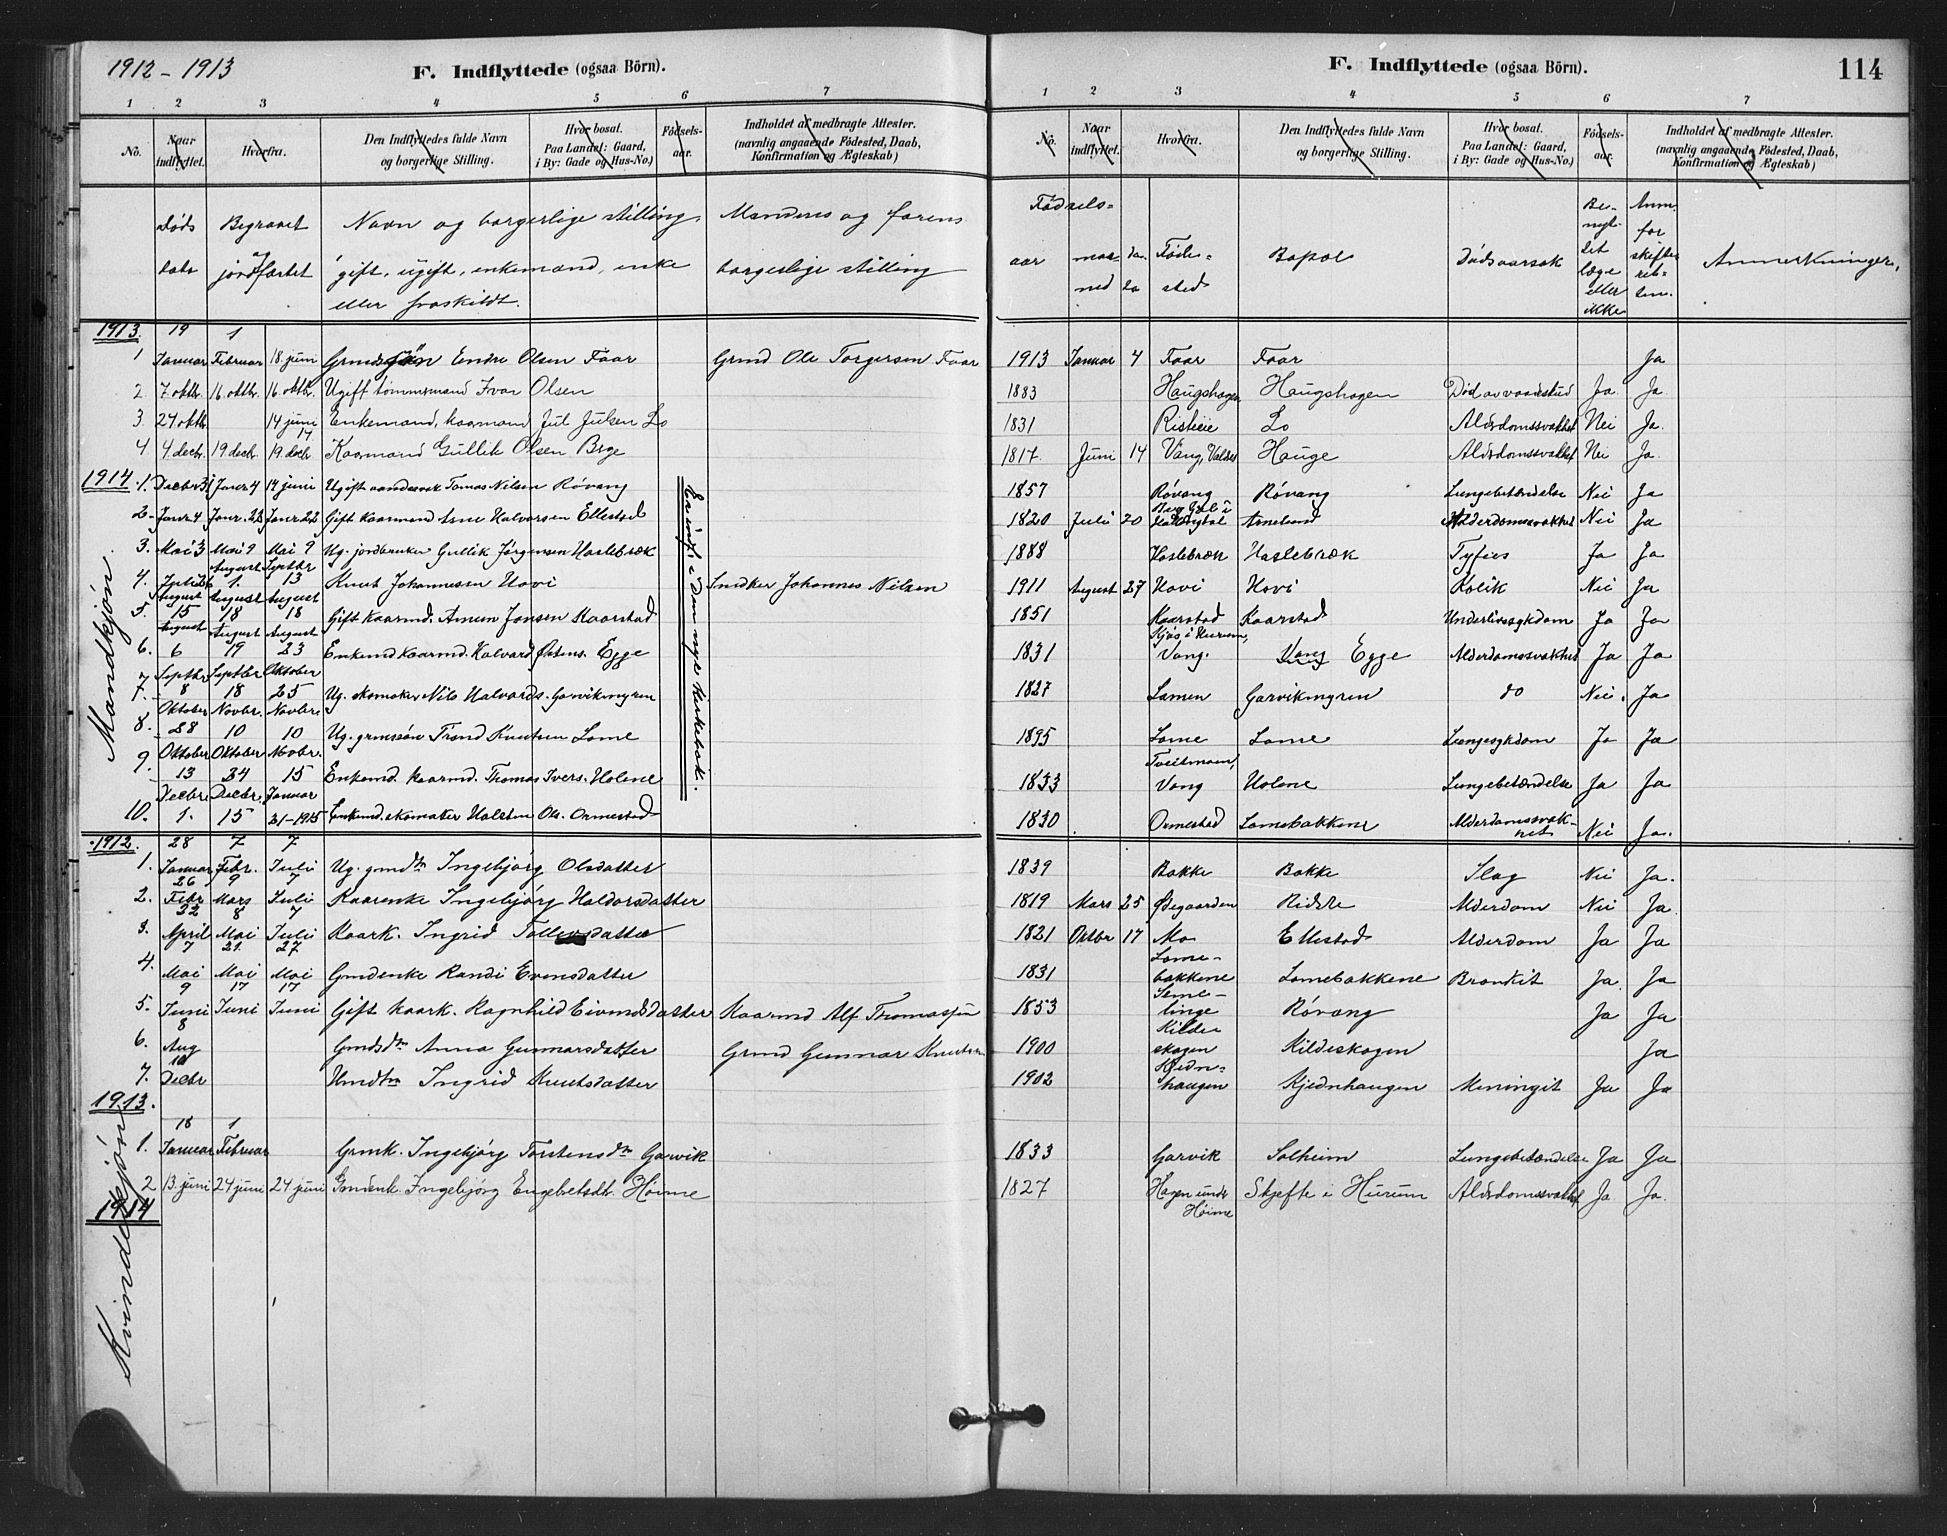 1912 - 1913
F. Indflyttede (ogsaa Börn).
1 2 3 4 5 6 7
No. Naar indflyttet. Hvorfra. Den Indflyttedes fulde Navn og borgerlige Stilling. Hvor bosat. Paa Landet: Gaard, i By: Gade og Hus-No.) Födsels-aar. Indholdet af medbragte Attester. (navnlig angaaende Födested, Daab, Konfirmation og Ægteskab)
Döds dato Begravet jordfæstet Navn og borgerlige stilling, gift, ugift, enkemand, enke eller fraskildt. Mandens og farens borgerlige stilling
1913. 19 1
1 Januar Februar 18. juni Grmdssøn Endre Olsen Faar Grmd Ole Torgersen Faar
2 7. oktbr. 16. oktbr. 16. oktbr. Ugift tømmermand Ivar Olsen
3 24. oktbr. 14 juni 14 Enkemand, kaarmand Jul Julsen Lo
4. 4. decbr. 19 decbr. 19. decbr. Kaarmand Gullik Olsen Byge
1914. 1. Decbr 31 Janr 4 14 juni Ugift aandssvak Tomas Nilsen Røvang
2. Janr 4 Janr. 22 Janr 22 Gift kaarmand Arne Halvorsen Ellestad
3. Mai 3 Mai 9 Mai 9 Ug. jordbruker Gullik Jørgensen Haslebræk
4. August 1. Septbr 13 Knut Johannesen Hovi Snedker Johannes Nilsen
5. August 15 August 18 August 18 Gift Kaarmd. Amun Jonsen Kaarstad
6. August 6 August 19 August 23 Enkemd kaarmd. Halvard Østens. Egge
7. Septbr 8 Septbr 18 Oktober 25 Ug. skomaker Nils Halvards. Garvikmyren
8. Oktober 28 Novbr. 10 Novbr. 10 Ug. grmssøn Trond Knutsen Lome
9. Oktober 13 Oktober 24 Novbr. 15 Enkemd. kaarmd. Thomas Ivers. Holene
10. Decbr. 1. Decbr. 15 Januar 31-1915 Enkemd. skomaker Halsten Ols. Ormestad
Er indf. i den nye kirkebok.
Mandkjøn.
1912. 28 7 7
1. Januar Febr. Juli Ug. grmdtr Ingebjørg Olsdatter
2. 26 Febr 9 Mars 7 Juli Kaarenke Ingebjørg Haldorsdatter
3. 22 April 8 Mai 7 Juli Kaark. Ingrid Tollevsdatter
4. 7 Mai 21. Mai 27 Mai Grmdenke Randi Evensdatter
5. 9 Juni 17 Juni 17 Juni Gift kaark. Ragnhild Eivindsdatter Kaarmd Alf Thomassøn
6. 8 Aug Grmdsdtr Anna Gunnarsdatter Grmd Gunnar Knutsen
7. 10 Decbr Hmdtr Ingrid Knutsdatter
1913.
18 1
1. Januar Februar Grmk. Ingebjørg Torstensdtr Garvik
2 13. juni 24 juni 24 juni Grmdenk. Ingebjørg Engebretsdt. Høime
1914
Kvindekjøn
F. Indflyttede (ogsaa Börn).
114
1 2 3 4 5 6 7
No. Naar indflyttet. Hvorfra. Den Indflyttedes fulde Navn og borgerlige Stilling. Hvor bosat. Paa Landet: Gaard, i By: Gade og Hus-No.) Födsels-aar. Indholdet af medbragte Attester. (navnlig angaaende Födested, Daab, Konfirmation og Ægteskab)
Fødsels- aar maaned dato Fødested Bopæl Dødsaarsak Benyttet læge eller ikke Anm. for skifteretten. Anmerkninger.
1913 Januar 4 Faar Faar Ja
1883 Haugshagen Haugshagen Død av vaadeskud Ja Ja
1831 Risteie Lo Alderdomssvakhet Nei Ja.
1817. Juni 14 Vang, Valdres Hauge Alderdomssvakhet Nei Ja.
1857 Røvang Røvang Lungebetændelse Nei Ja
1820 Juli 20 Arnelund Alderdomssvakhet Nei Ja
1888 Haslebræk Haslebræk Tyfus Ja Ja
1911 August 27 Hovi Hovi Kolik Nei Ja
1851 Kaarstad Kaarstad Underlivssykdom Ja Ja
1831 Skjøs i Hurum, Vang. Vang Egge Alderdomssvakhed Ja Ja
1827 Lomen Garvikmyren do Nei. Ja
1895 Lome Lome Lungesykdom Ja Ja
1833 Tveitmoen, Vang Holene Lungebetændelse Ja Ja
1830 Ormestad Lomebakkene Alderdomssvakhet Nei Ja.
1839 Bakke Bakke Slag Nei Ja.
1819 Mars 25 Øegaarden Ridste Alderdom Nei Ja
1821 Oktbr 17 Mo Ellestad Alderdom Ja Ja
1831 Lomebakkene Lomebakkene Bronkit Ja. Ja
1853 Semelinge Røvang Ja Ja
1900 Kildeskogen Kildeskogen Ja
1902 Kjednhaugen Kjednhaugen Meningit Ja Ja
1833 Garvik Solheim Lungebetændelse Ja Ja
1827 Hagen under Høime Skjefte i Hurum Alderdomssvakhet Ja Ja.